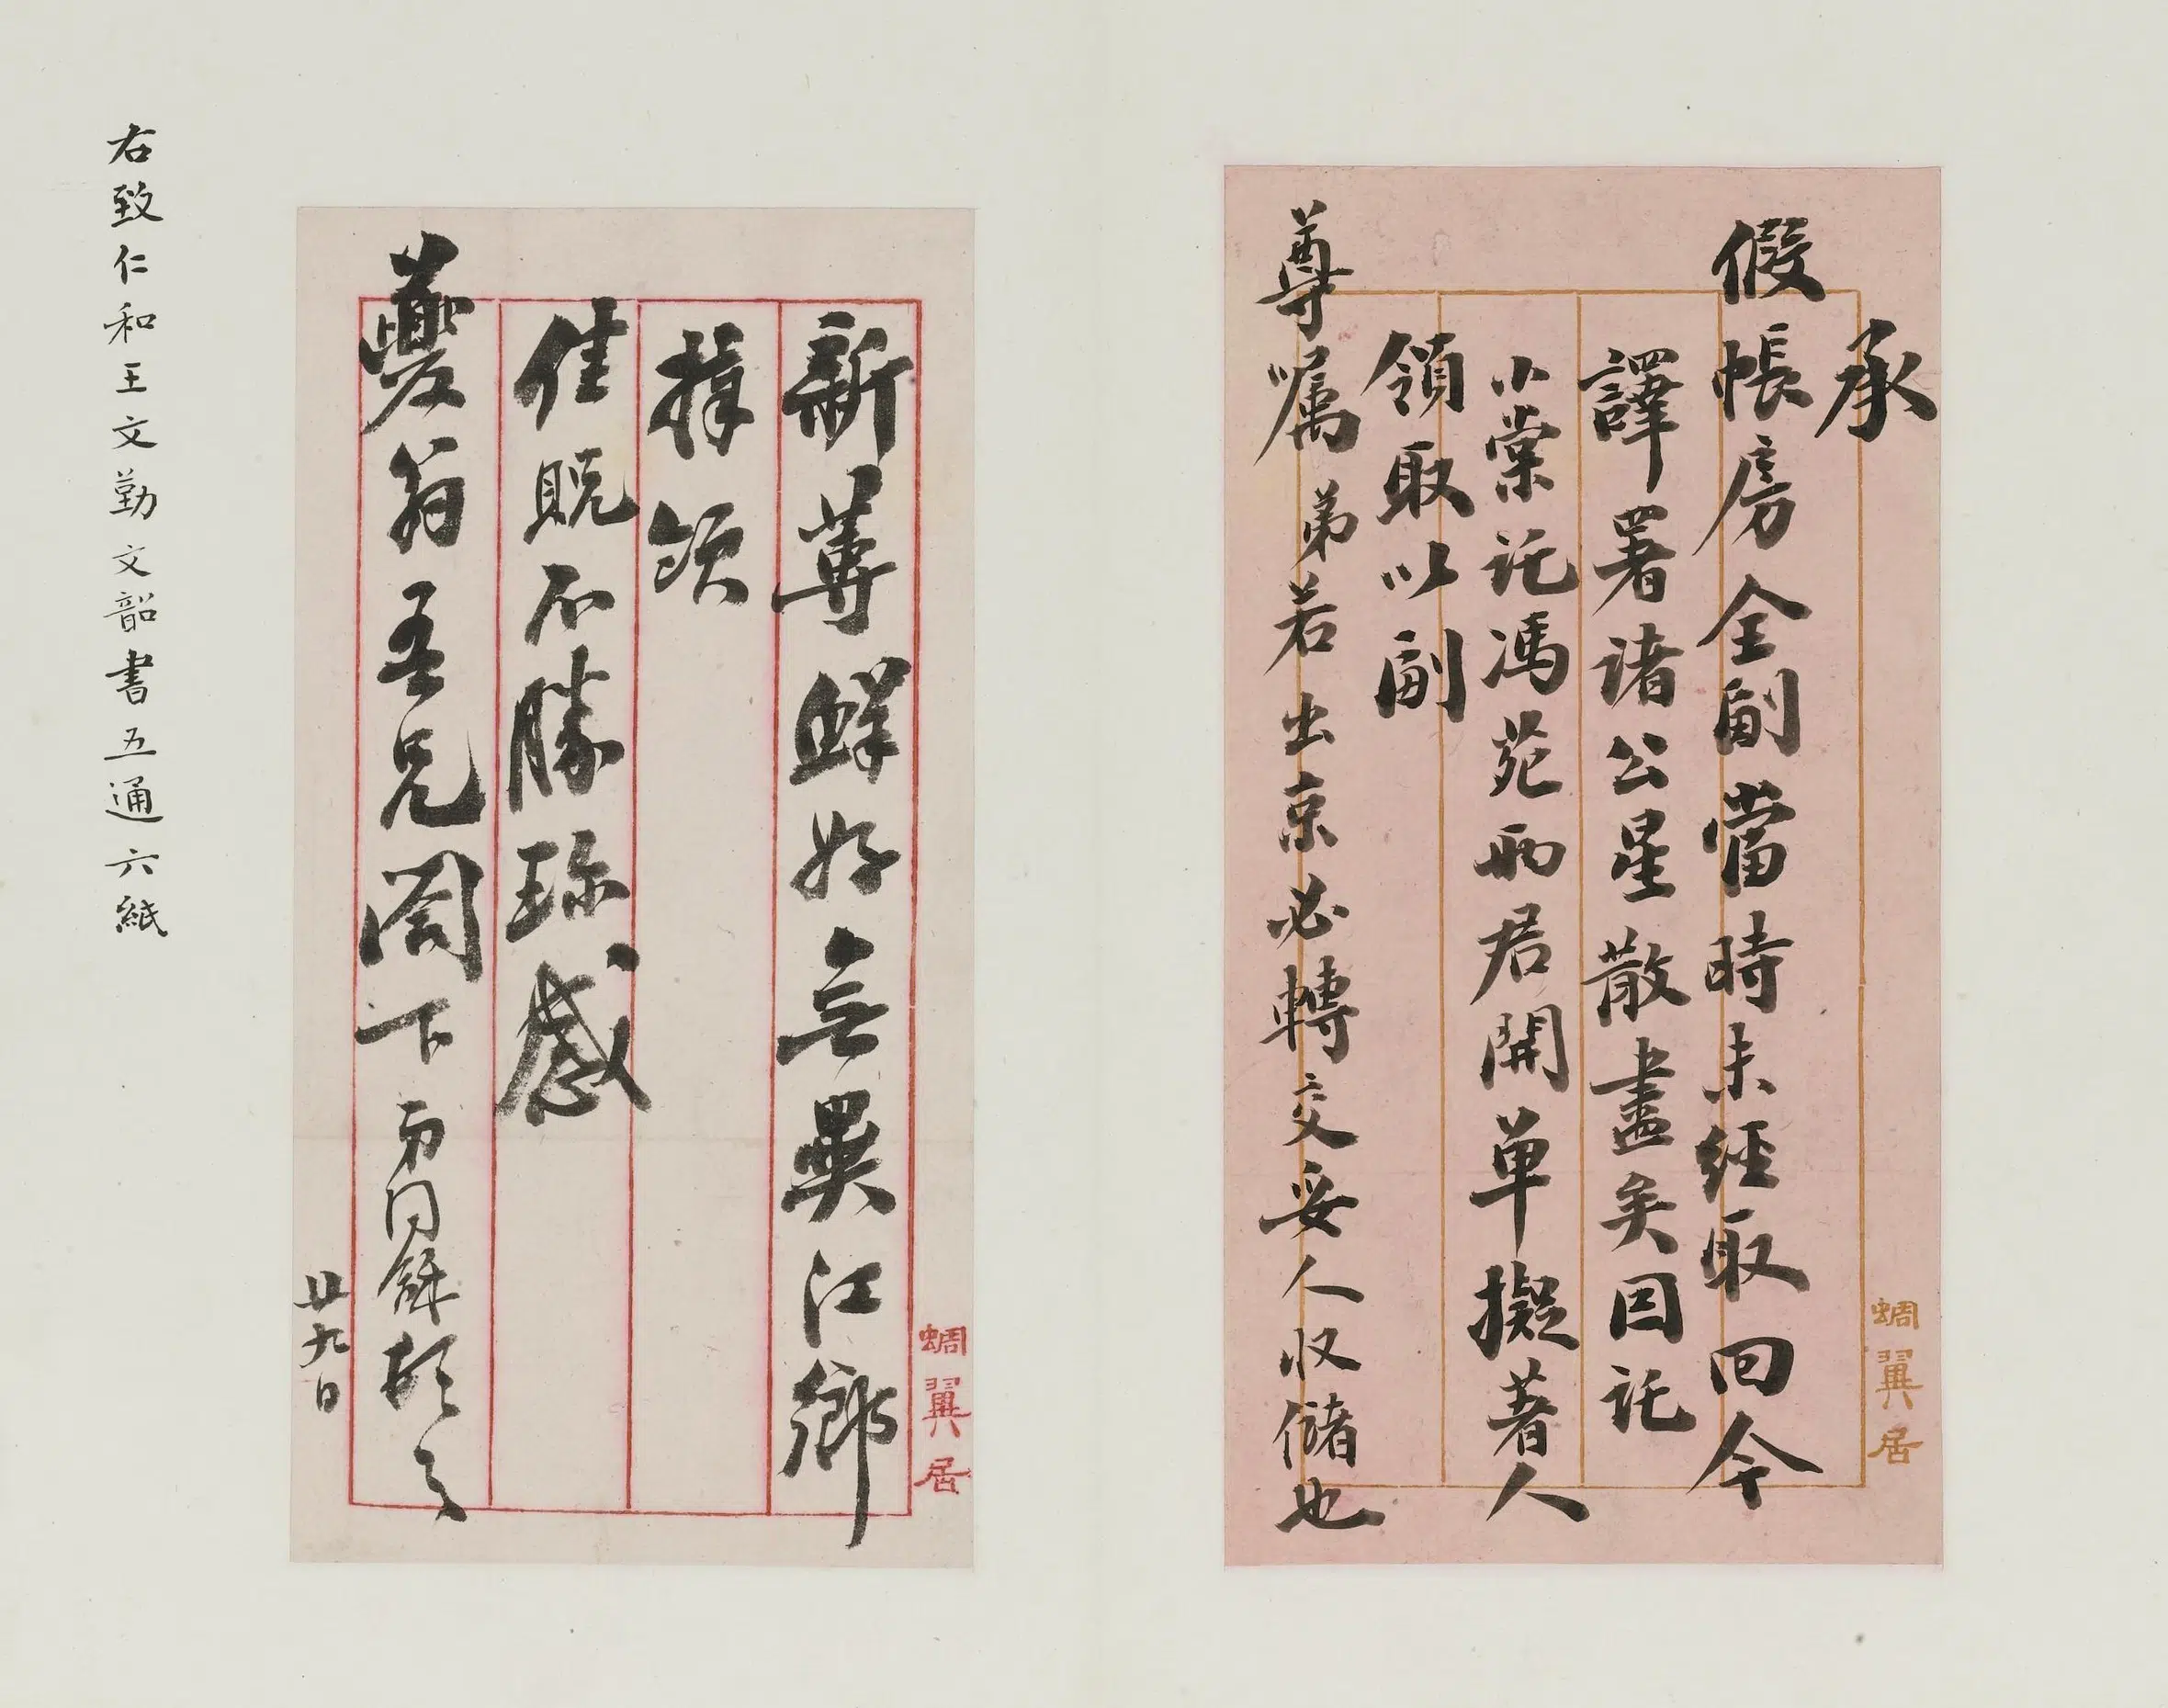 承
假帳房全副當時未經取回今
譯署諸公星散盡矣因託
小棠託馮苑兩君開單擬著人
領取以副
尊囑弟若出京必轉交妥人收儲也
蜩翼居
新蓴鮮好無異江鄉
拜領
佳貺不勝珍感
夔翁吾兄閣下 弟同龢頓首
廿九日
蜩翼居
右致仁和王文勤文韶書五通六紙